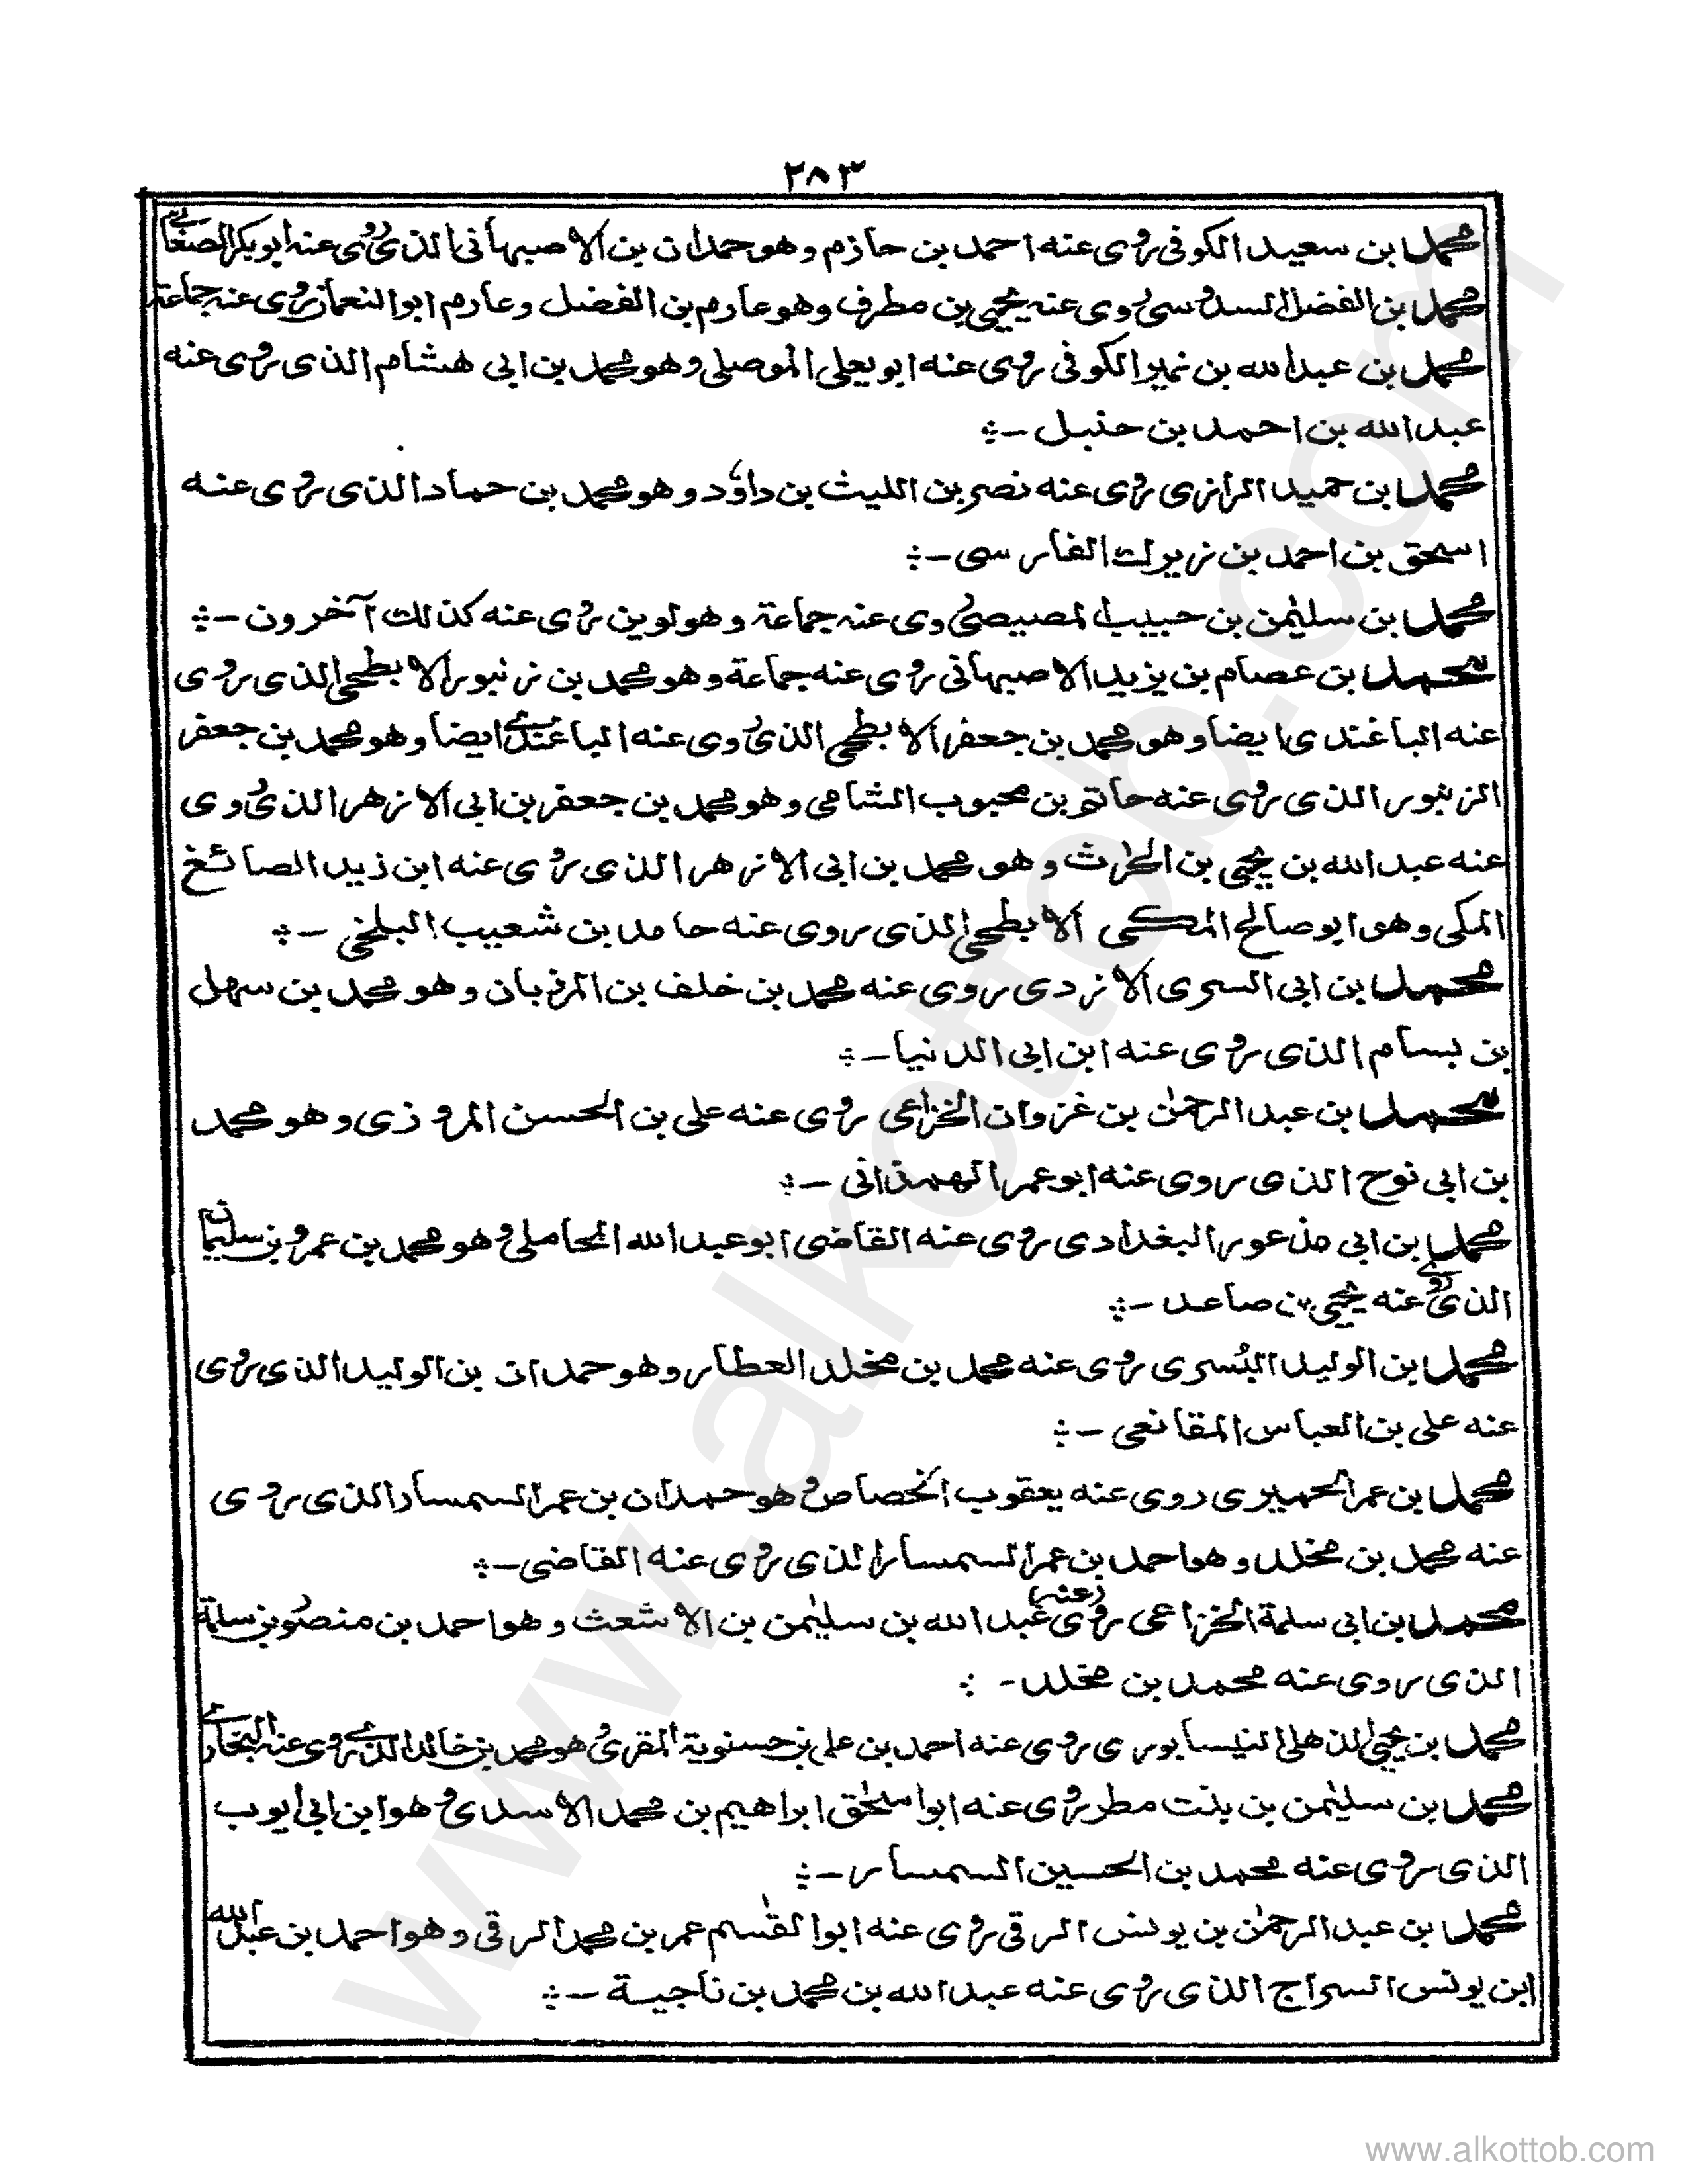 ٢٨٣
محمد بن سعيد الكوفى روى عنه احمد بن حازم وهو حمدان بن الاصبهانى الذى روى عنه ابو بكر الصغانى
محمد بن الفضل السدوسى روى عنه يحيى بن مطرف وهو عارم بن الفضل وعارم ابو النعمان روى عنه جماعة
محمد بن عبد الله بن نمير الكوفى روى عنه ابو يعلى الموصلى وهو محمد بن ابى هشام الذى روى عنه
عبد الله بن احمد بن حنبل -:
محمد بن حميد الرازى روى عنه نصر بن الليث بن داؤد وهو محمد بن حماد الذى روى عنه
اسحق بن احمد بن زيرك الفارسى -:
محمد بن سليمن بن حبيب المصيصى روى عنه جماعة وهو لوين روى عنه كذلك آخرون -:
محمد بن عصام بن يزيد الاصبهانى روى عنه جماعة وهو محمد بن زنبور الابطحى الذى روى
عنه الباغندى ايضا وهو محمد بن جعفر الابطحى الذى روى عنه الباغندى ايضا وهو محمد بن جعفر
الزنبور الذى روى عنه حاتم بن محبوب الشامى وهو محمد بن جعفر بن ابى الازهر الذى روى
عنه عبد الله بن يحيى بن الحٰرث وهو محمد بن ابى الازهر الذى روى عنه ابن زيد الصائغ
المكى وهو ابو صالح المكى الابطحى الذى روى عنه حامد بن شعيب البلخى -:
محمد بن ابى السرى الازدى روى عنه محمد بن خلف بن المرزبان وهو محمد بن سهل
بن بسام الذى روى عنه ابن ابى الدنيا -:
محمد بن عبد الرحمٰن بن غزوان الخزاعى روى عنه على بن الحسن المروزى وهو محمد
بن ابى نوح الذى روى عنه ابو عمر الهمذانى -:
محمد بن ابى مذعور البغدادى روى عنه القاضى ابو عبد الله المحاملى وهو محمد بن عمرو بن سليمان
الذى روى عنه يحيى بن صاعد -:
محمد بن الوليد البُسرى روى عنه محمد بن مخلد العطار وهو حمدان بن الوليد الذى روى
عنه على بن العباس المقانعى -:
محمد بن عمر الحميرى روى عنه يعقوب الخصاص وهو حمدان بن عمر السمسار الذى روى
عنه محمد بن مخلد وهو احمد بن عمر السمسار الذى روى عنه القاضى -:
محمد بن ابى سلمة الخزاعى روى (عنه) عبد الله بن سليمٰن بن الاشعث وهو احمد بن منصور بن سلمة
الذى روى عنه محمد بن مخلد - :
محمد بن يحيى الذهلى النيسابورى روى عنه احمد بن على بن حسنوية المقرى وهو محمد بن خالد الذى روى عنه البخارى
محمد بن سليمٰن بن بنت مطر روى عنه ابو اسحٰق ابراهيم بن محمد الاسدى وهو ابن ابى ايوب
الذى روى عنه محمد بن الحسين السمسار -:
محمد بن عبد الرحمٰن بن يونس الرقى روى عنه ابو القٰسم عمر بن محمد الرقى وهو احمد بن عبد الله
ابن يونس السراج الذى روى عنه عبد الله بن محمد بن ناجية -:
www.alkottob.com
www.alkottob.com